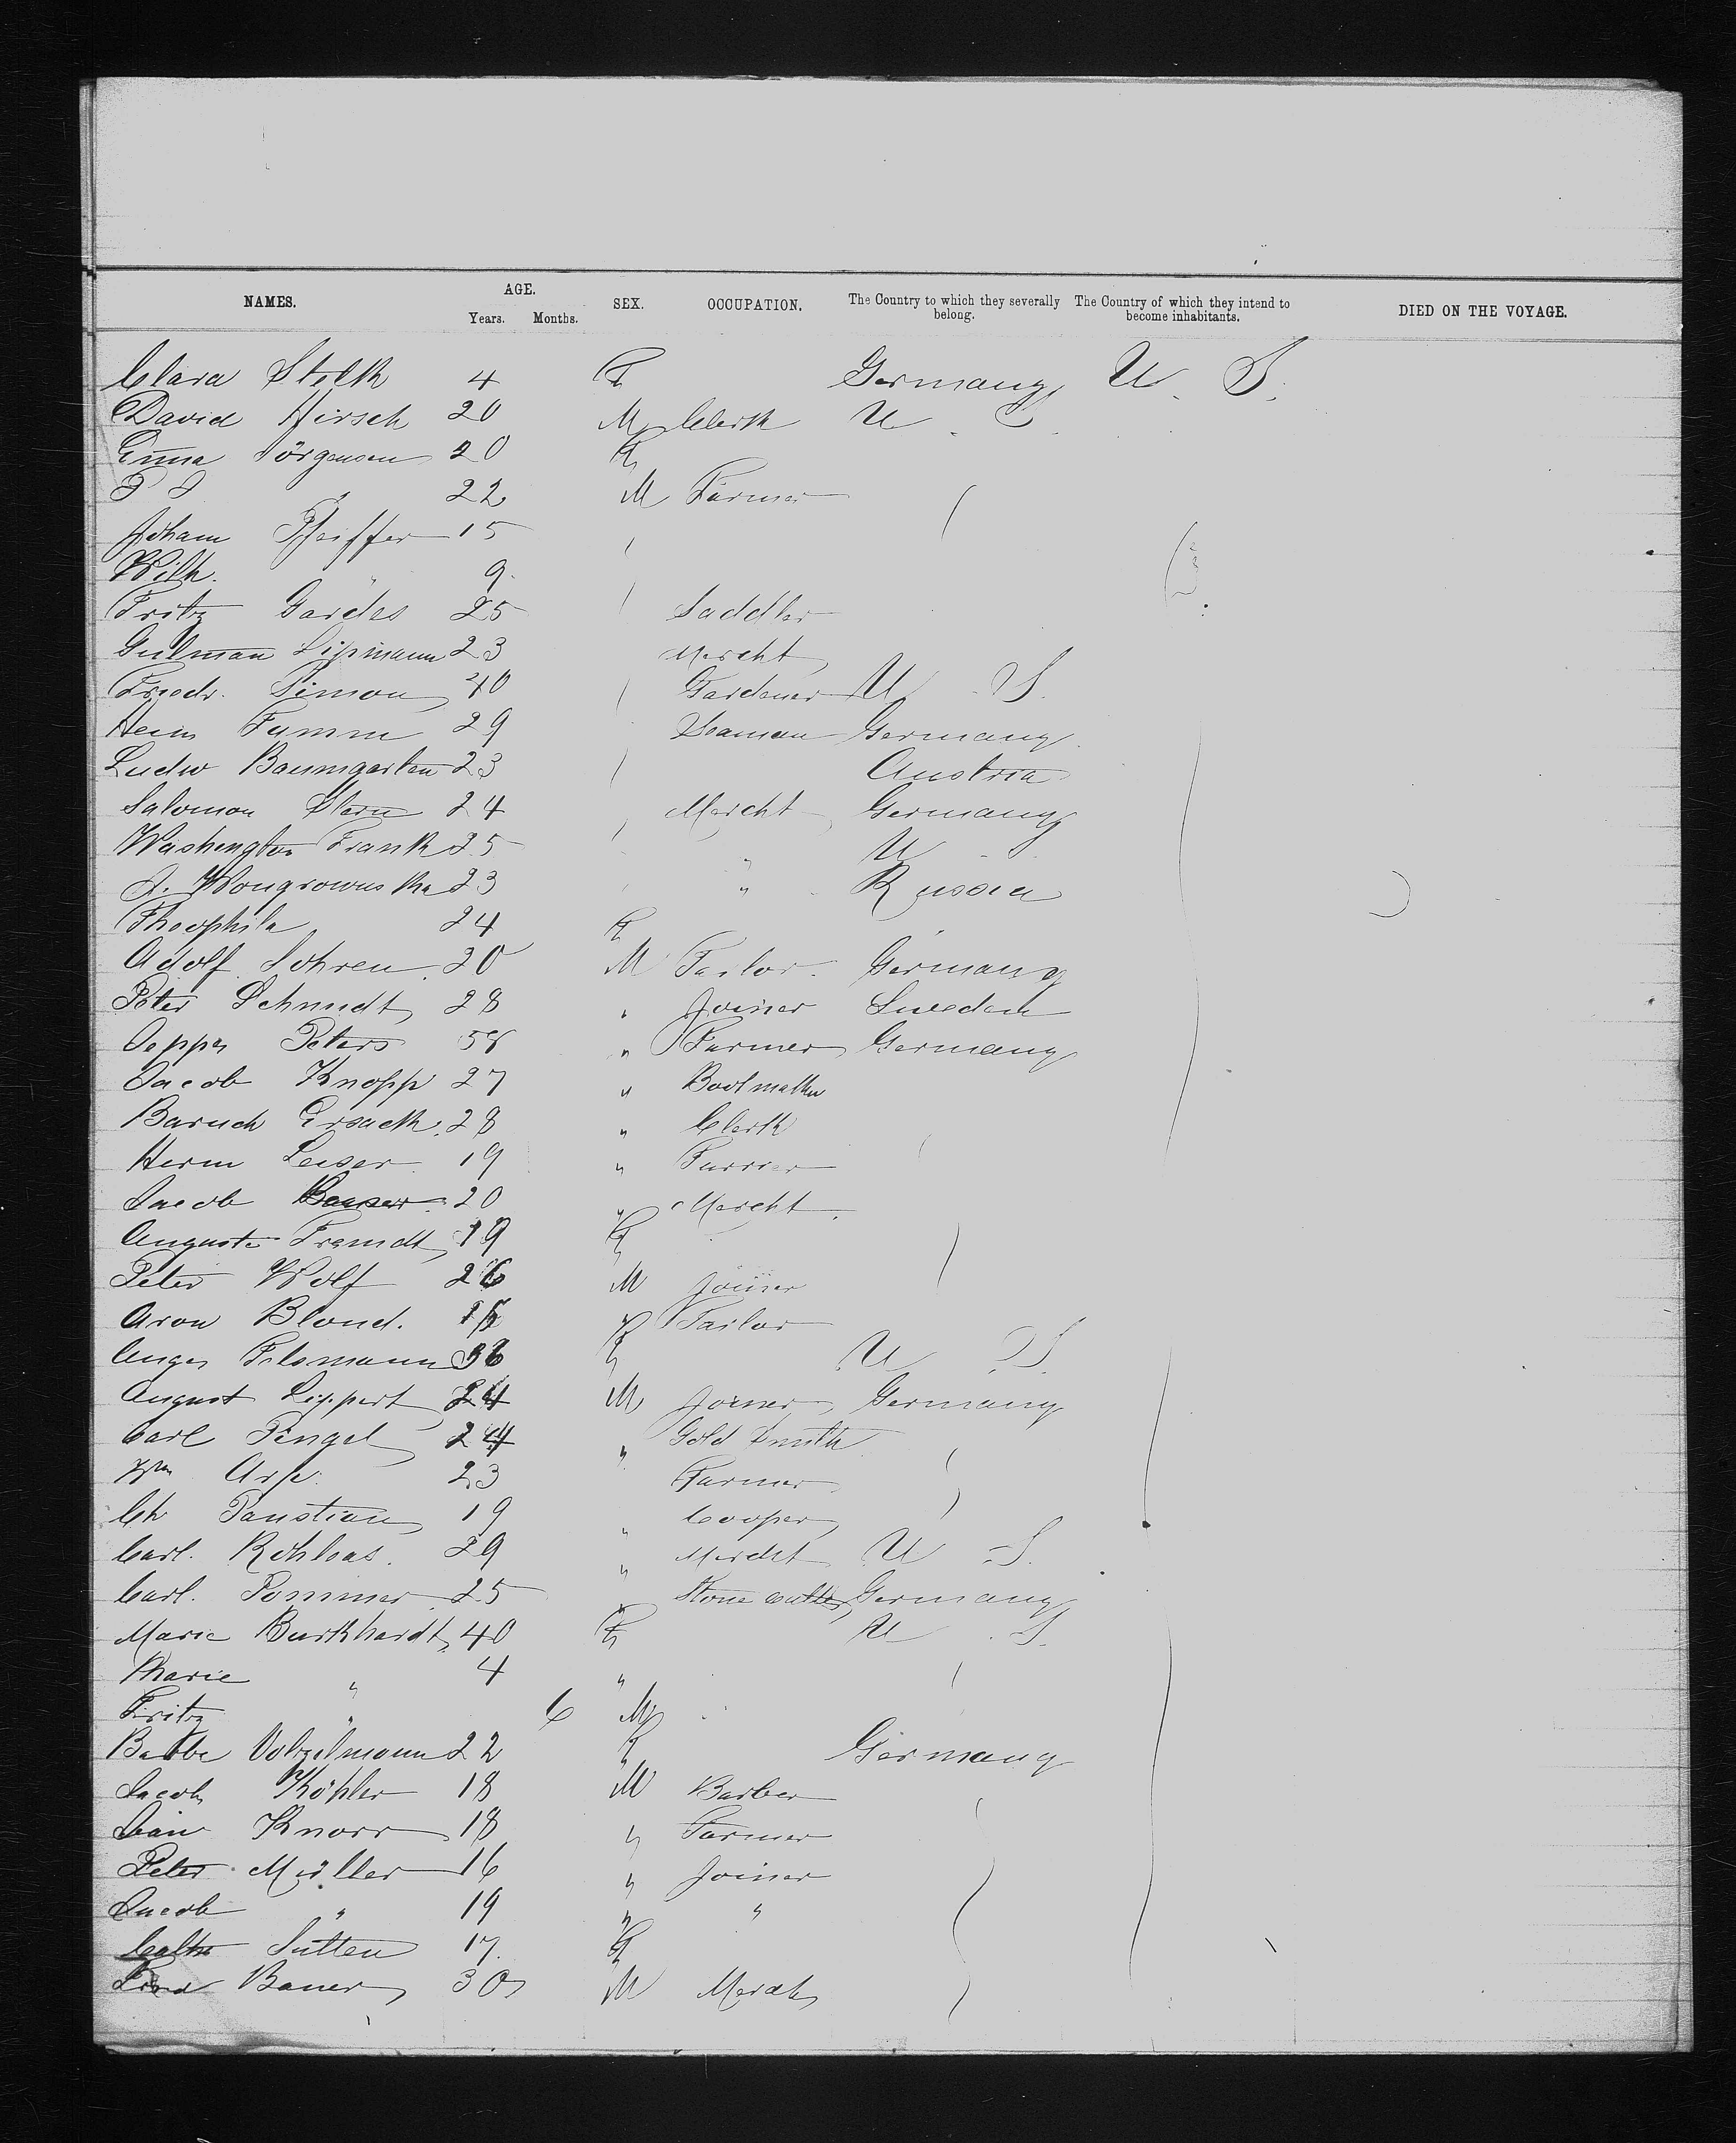 NAMES. AGE. Years. Months. SEX. OCCUPATION. The Country to which they severally belong. The Country of which they intend to become inhabitants. DIED ON THE VOYAGE.
Clara Stelk 4 F Germany U. S.
David Hirsch 20 M Clerk U. S.
Emma Jörgensen 20 F
22 M Farmer
Joham Pfeiffer 15
Wilh. " 9
Fritz Gardes 25 Saddler
Gulman Lipmann 23 Mercht
Friedr. Simon 40 Gardener U. S.
Hein Tamm 29 Seaman Germany
Ludw Baumgarten 23 Austria
Salomon Stern 24 Mercht Germany
Washington Frank 25 " U
J. Wongrownska 23 " Russia
Theophila 24 F
Adolf Sohren 20 M Tailor Germany
Peter Schmidt 28 " Joiner Sweden
Jeppe Peters 58 " Farmer Germany
Jacob Knopp 27 " Bootmaker
Baruch 28 " Clerk
Herm Leiser 19 " Furrier
Jacob 20 " Mercht
Auguste Fremdt 19 F
Peter Wolf 26 M Joiner
Aron Blond. Tailor
Felsmann 36 F U S.
August Lippert 24 M Joiner Germany
Carl Pingel 24 " Gold Smith
Wm Arp. 23 Farmer
Ch Paustian 19 " Cooper
Carl. Kohlsas. 29 " Mercht U S.
Carl. Pommer 25 " Stone cutter Germany
Marie Burkhardt 40 F U. S.
Marie " 4 "
Fritz " 6 M
Volzelmann 22 F Germany
Jacob Köhler 18 M Barber
Knorr 18 " Farmer
Peter Müller 16 " Joiner
Jacob " 19 " "
Sutten 17. F
Bauer 30 M Mercht